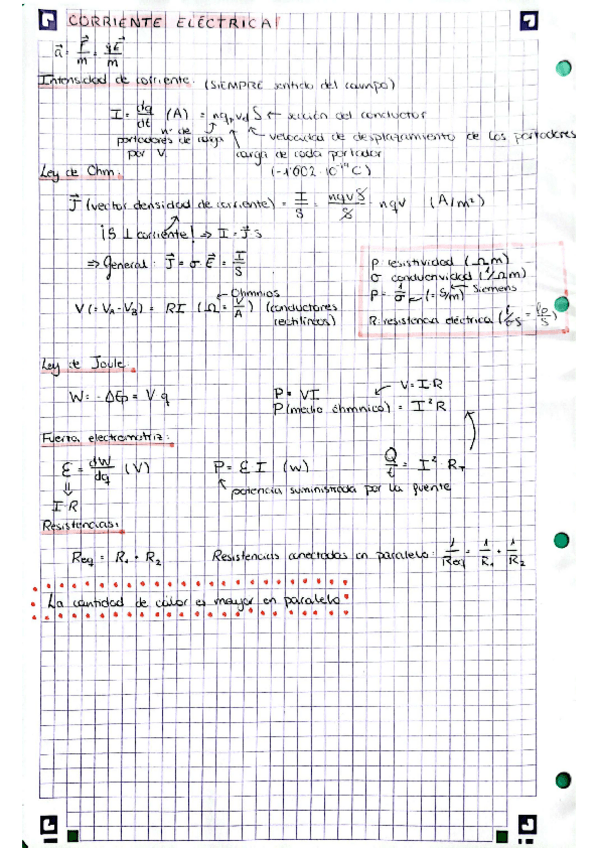 CORRIENTE ELÉCTRICA
a⃗ = F⃗/m = qE⃗/m
Intensidad de corriente: (SIEMPRE sentido del campo)
I = dq/dt (A) = nqₚv_d S ← sección del conductor
nº de portadores de carga por V
velocidad de desplazamiento de los portadores
carga de cada portador
(-1'602·10⁻¹⁹ C)
Ley de Ohm:
J⃗ (vector densidad de corriente) = I/S = nqvS/S = nqv (A/m²)
¡S ⊥ corriente! ⇒ I = J⃗ S
⇒ General: J⃗ = σ·E⃗ = I/S
ρ resistividad (Ωm)
σ conductividad (1/Ωm)
ρ = 1/σ ← (= S/m) Siemens
R: resistencia eléctrica (l/σS = lρ/S)
← Ohmnios
V (= V_A - V_B) = RI (Ω = V/A) (conductores rectilíneos)
Ley de Joule:
W = -ΔEp = V q
P = VI
V = I·R
P (medio óhmnico) = I²R
Fuerza electromotriz:
ε = dW/dq (V)
P = ε I (w)
Q/t = I²·R_T
potencia suministrada por la fuente
I·R
Resistencias:
Req = R₁ + R₂
Resistencias conectadas en paralelo: 1/Req = 1/R₁ + 1/R₂
La cantidad de calor es mayor en paralelo